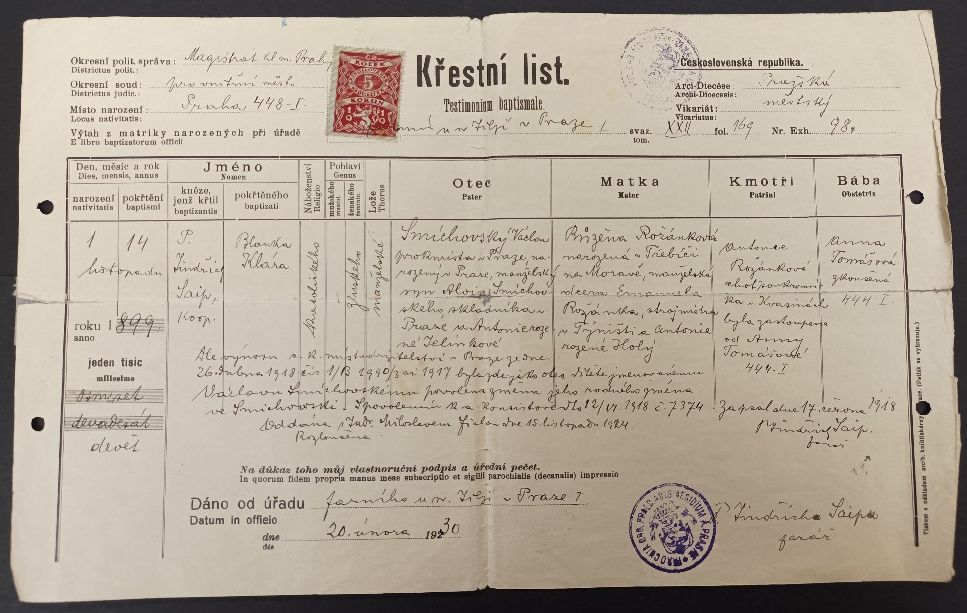 Okresní polit. správa: Magistrat hl. m. Prahy
Districtus polit.:
Okresní soud:
Districtus judic.:
Místo narození: Praha 448-I.
Locus nativitatis:
Výtah z matriky narozených při úřadě
E libro baptizatorum officii
Křestní list.
Testimonium baptismale.
u sv. Jiljí v Praze I
Československá republika.
Arci-Diecése Pražská
Archi-Dioecesis:
Vikariát: městský
Vicariatus:
svaz. XXII fol. 169 Nr. Exh. 98.
tom.
KOLEK
5
KORUN
1919
Den, měsíc a rok
Dies, mensis, annus
narození
nativitatis
pokřtění
baptismi
Jméno
Nomen
kněze, jenž křtil
baptizantis
pokřtěného
baptizati
Náboženství
Religio
Pohlaví
Genus
mužského
mascul.
ženského
feminin.
Lože
Thorus
Otec
Pater
Matka
Mater
Kmotři
Patrini
Bába
Obstetrix
1 14
listopadu
roku 1899
anno
jeden tisíc
millesimo
osmset
devadesát
devět
P.
Jindřich
Saip,
koop.
Blanka
Klára
katolického
ženského
manželské
Smichovský Václav
prokurista v Praze, na-
rozený v Praze, manželský
syn Aloise Smichov-
ského, skladníka v
Praze a Antonie roze-
né Jelínkové
Růžena Rožánková
narozena v Třebíči
na Moravě, manželská
dcera Emanuela
Rožánka,
v Týništi a Antonie
rozené Holý
Antonie
Rožánková
byla zastoupena
od Anny
Tomášové
444-I
Anna
Tomášová
zkoušená
444 I.
Dle výnosu c. k. místodržitelství v Praze ze dne
26. dubna 1918 čís. 1/B 1990/3 ai 1917 byla zde jako otec dítěte jmenovanému
Václavu Smichovskému povolena změna jeho rodného jména
ve Smichovski. S povolením k. a. konsistoře dto 12/VI. 1918 č. 7374 Zapsal dne 17. června 1918
P. Jindřich Saip.
farář
Oddána s Judr. Miloslavem Fialou dne 15. listopadu 1924.
Rozloučena
Na důkaz toho můj vlastnoruční podpis a úřední pečeť.
In quorum fidem propria manus meae subscriptio et sigilli parochialis (decanalis) impressio
Dáno od úřadu farního u sv. Jiljí v Praze I
Datum in officio
dne 20. února 1930
die
P. Jindřich Saip
farář